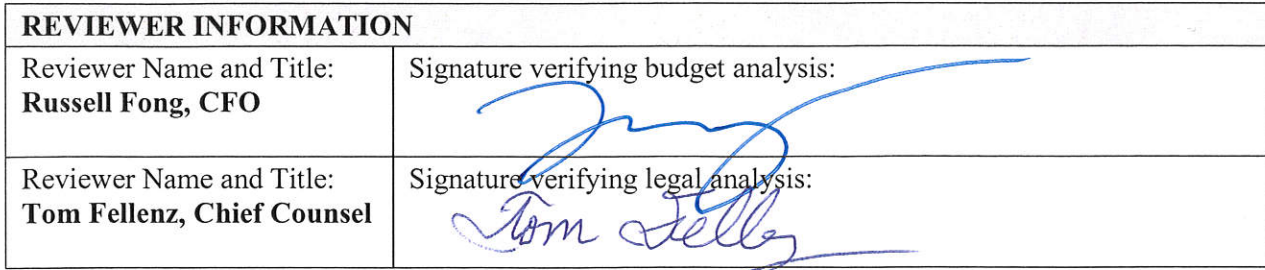 REVIEWER INFORMATION
Reviewer Name and Title:
Russell Fong, CFO
Signature verifying budget analysis:
Reviewer Name and Title:
Tom Fellenz, Chief Counsel
Signature verifying legal analysis:
Tom